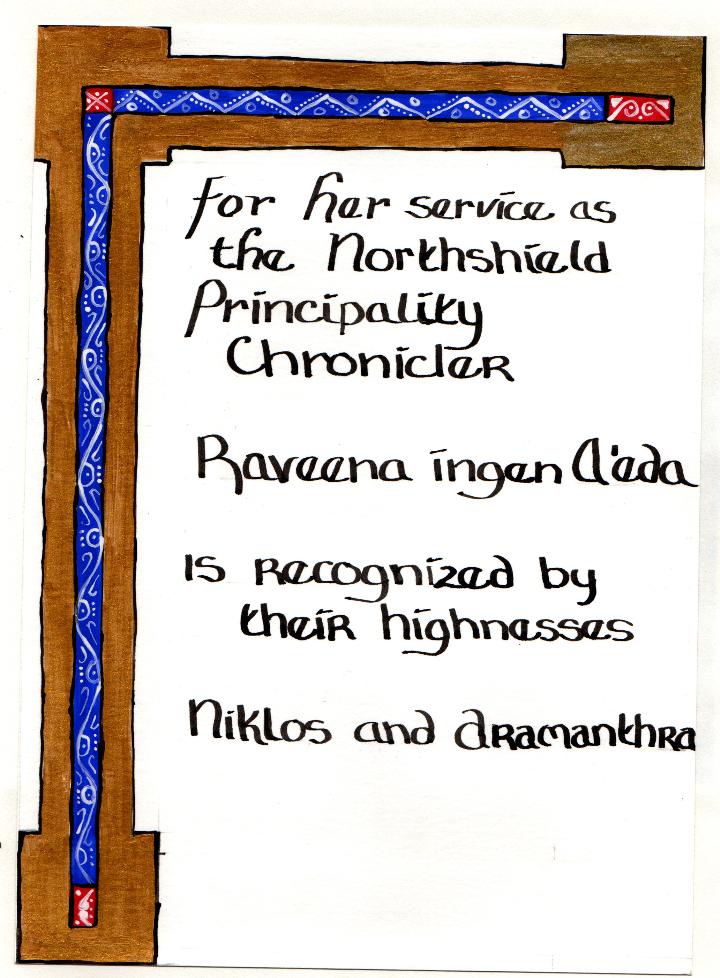 for her service as
the Northshield
Principality
Chronicler
Raveena ingen A'eda
is recognized by
their highnesses
Niklos and Aramanthra